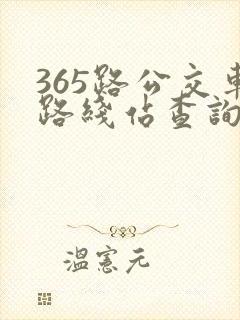 365路公交車
路綫佔查詢
溫憲元